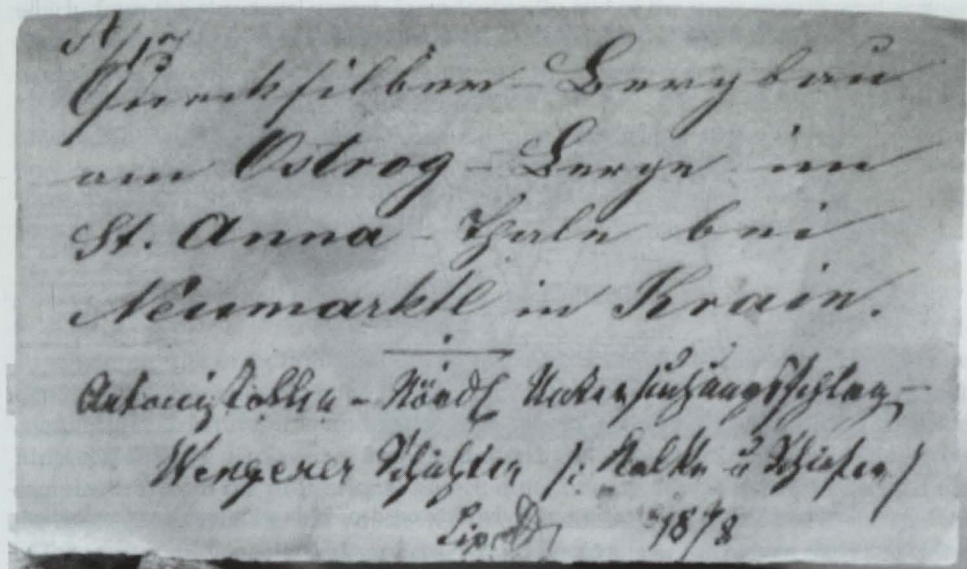 A/17
Quecksilber-Bergbau
am Ostrog-Berge im
St. Anna-Thale bei
Neumarktl in Krain.
Antonistollen – Nördl Untersuchungsschlag –
Wengener Schichten /: Kalke u Schiefer /
Lipold 1878